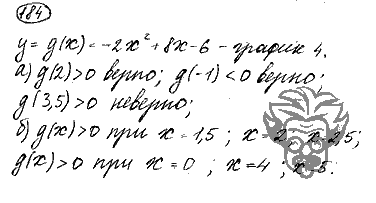 184
y = g(x) = -2x² + 8x - 6 - график 4.
а) g(2) > 0 верно; g(-1) < 0 верно;
g(3,5) > 0 неверно;
б) g(x) > 0 при x = 1,5; x = 2; x = 2,5;
g(x) > 0 при x = 0; x = 4; x = 5.